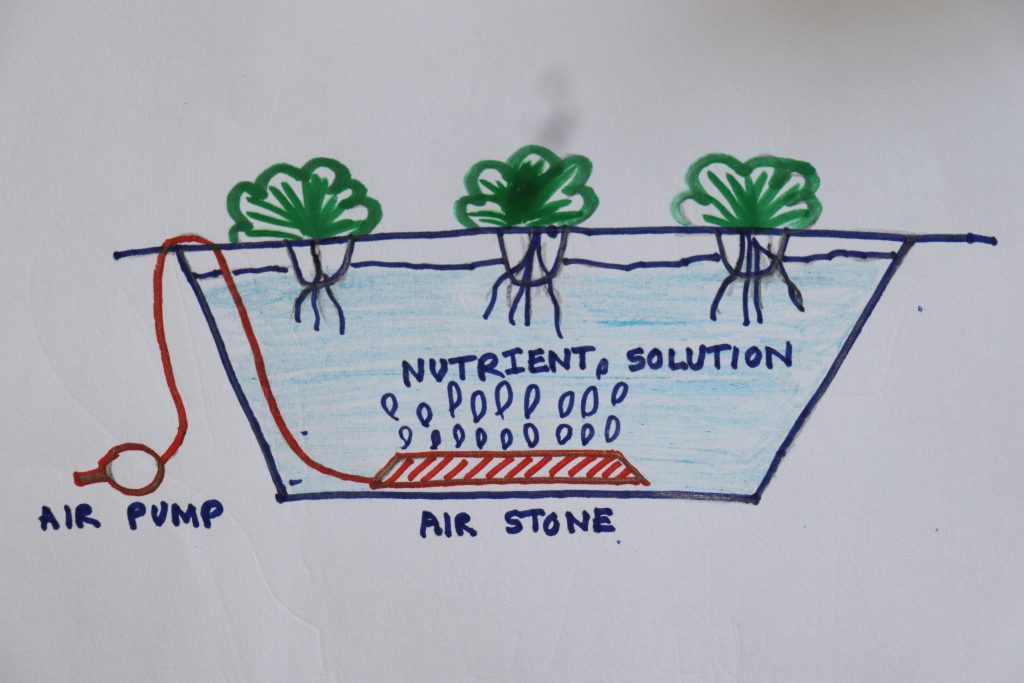 NUTRIENT SOLUTION
AIR PUMP
AIR STONE